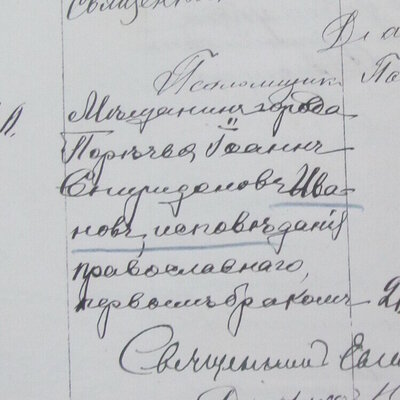 Священни
Псаломщик
Мѣщанинъ города
Порѣчья Іоаннъ
Спиридоновъ Ива-
новъ, исповѣданія
православнаго,
первымъ бракомъ
Священникъ